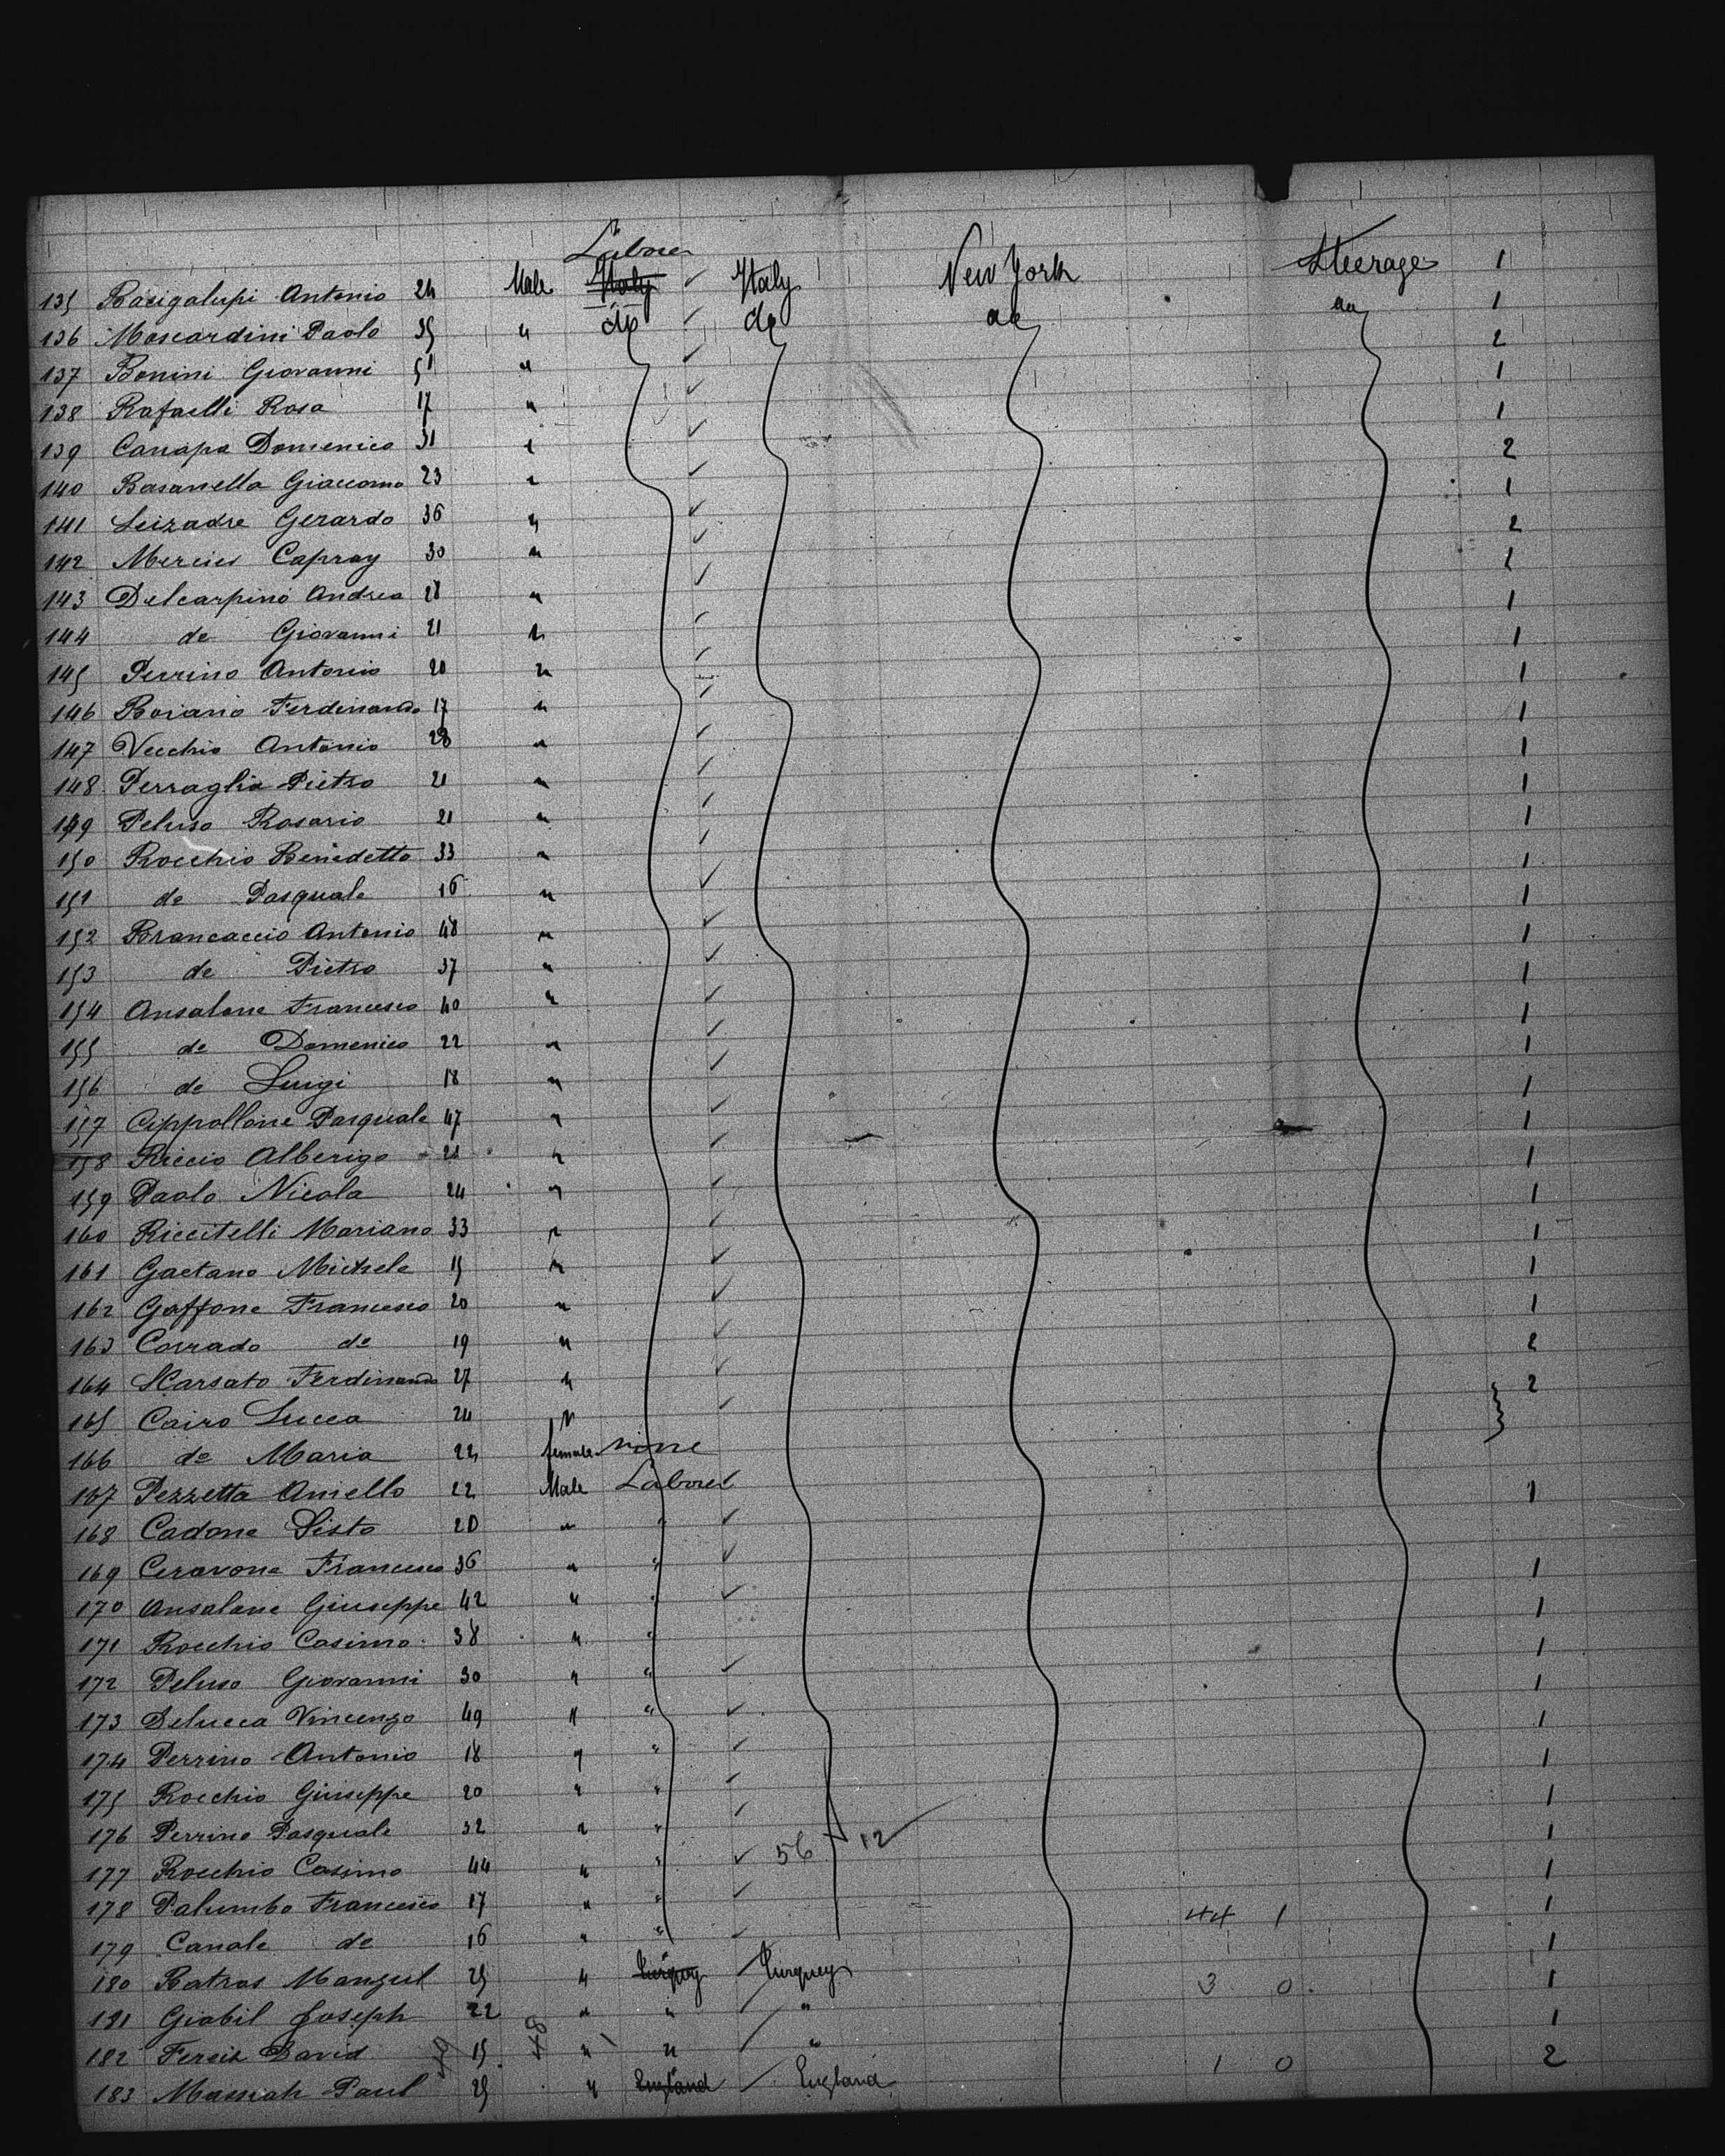 Labore
135 Bacigalupi Antonio 24 Male Italy Italy New York Steerage 1
136 Moscardini Paolo 35 " do do do do 1
137 Bonini Giovanni 51 " 2
138 Rafaelli Rosa 17 " 1
139 Canapa Domenico 31 " 1
140 Basanella Giaccomo 23 " 2
141 Leizadre Gerardo 36 " 1
142 Mercier Capray 30 " 2
143 Delcarpino Andrea 28 " 1
144 de Giovanni 21 " 1
145 Perrino Antonio 20 " 1
146 Boiano Ferdinando 17 " 1
147 Vecchio Antonio 28 " 1
148 Perraglia Pietro 21 " 1
149 Peluso Rosario 21 " 1
150 Rocchio Benedetto 33 " 1
151 de Pasquale 16 " 1
152 Brancaccio Antonio 48 " 1
153 de Pietro 37 " 1
154 Ansalone Francesco 40 " 1
155 de Domenico 22 " 1
156 de Luigi 18 " 1
157 Cippollone Pasquale 47 " 1
158 Riccio Alberigo 21 " 1
159 Paolo Nicola 24 " 1
160 Riccitelli Mariano 33 " 1
161 Gaetano Michele 15 " 1
162 Gaffone Francesco 20 " 1
163 Corrado de 19 " 2
164 Scarsato Ferdinando 27 " 2
165 Cairo Lucca 24 "
166 de Maria 22 female none
167 Pezzetta Aniello 22 Male Laborer 1
168 Cadone Sisto 20 " "
169 Ceravone Francesco 36 " " 1
170 Ansalone Giuseppe 42 " " 1
171 Rocchio Cosimo 38 " " 1
172 Peluso Giovanni 30 " " 1
173 Delucca Vincenzo 49 " " 1
174 Perrino Antonio 18 " " 1
175 Rocchio Giuseppe 20 " " 1
176 Perrino Pasquale 32 " " 1
177 Rocchio Cosimo 44 " " 56 12 1
178 Palumbo Francesco 17 " " 44 1 1
179 Canale de 16 " " 1
180 Batras Manzul 25 " Turquey Turquey 3 0 1
181 Giabil Joseph 22 " " " 1
182 Fereis David 15 " " " 1 0 2
183 Massiah Paul 25 " England England